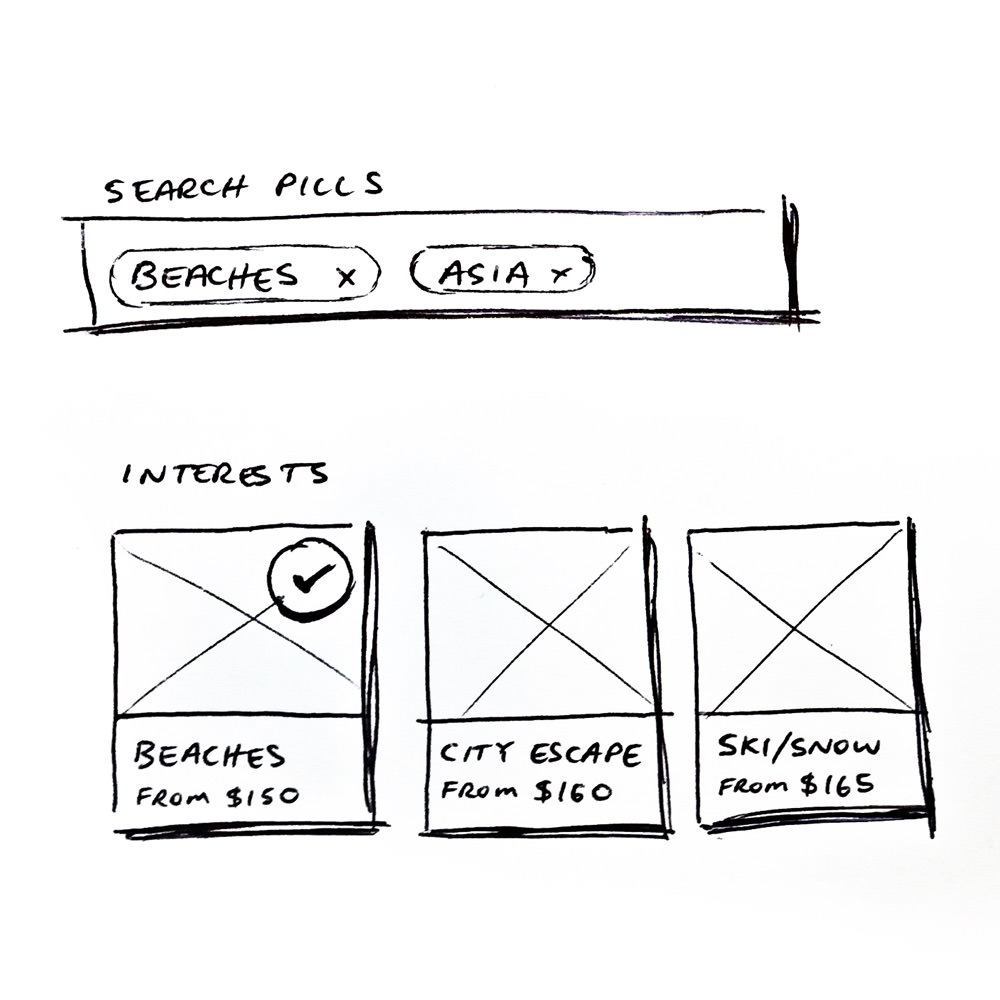 SEARCH PILLS
BEACHES x
ASIA x
INTERESTS
BEACHES
FROM $150
CITY ESCAPE
FROM $160
SKI/SNOW
FROM $165